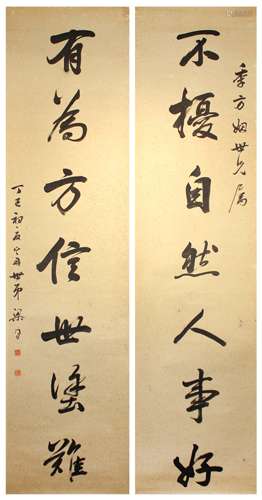 季方姻世兄属
不擾自然人事好
有為方信世塗難
丁巳初夏
世弟梁